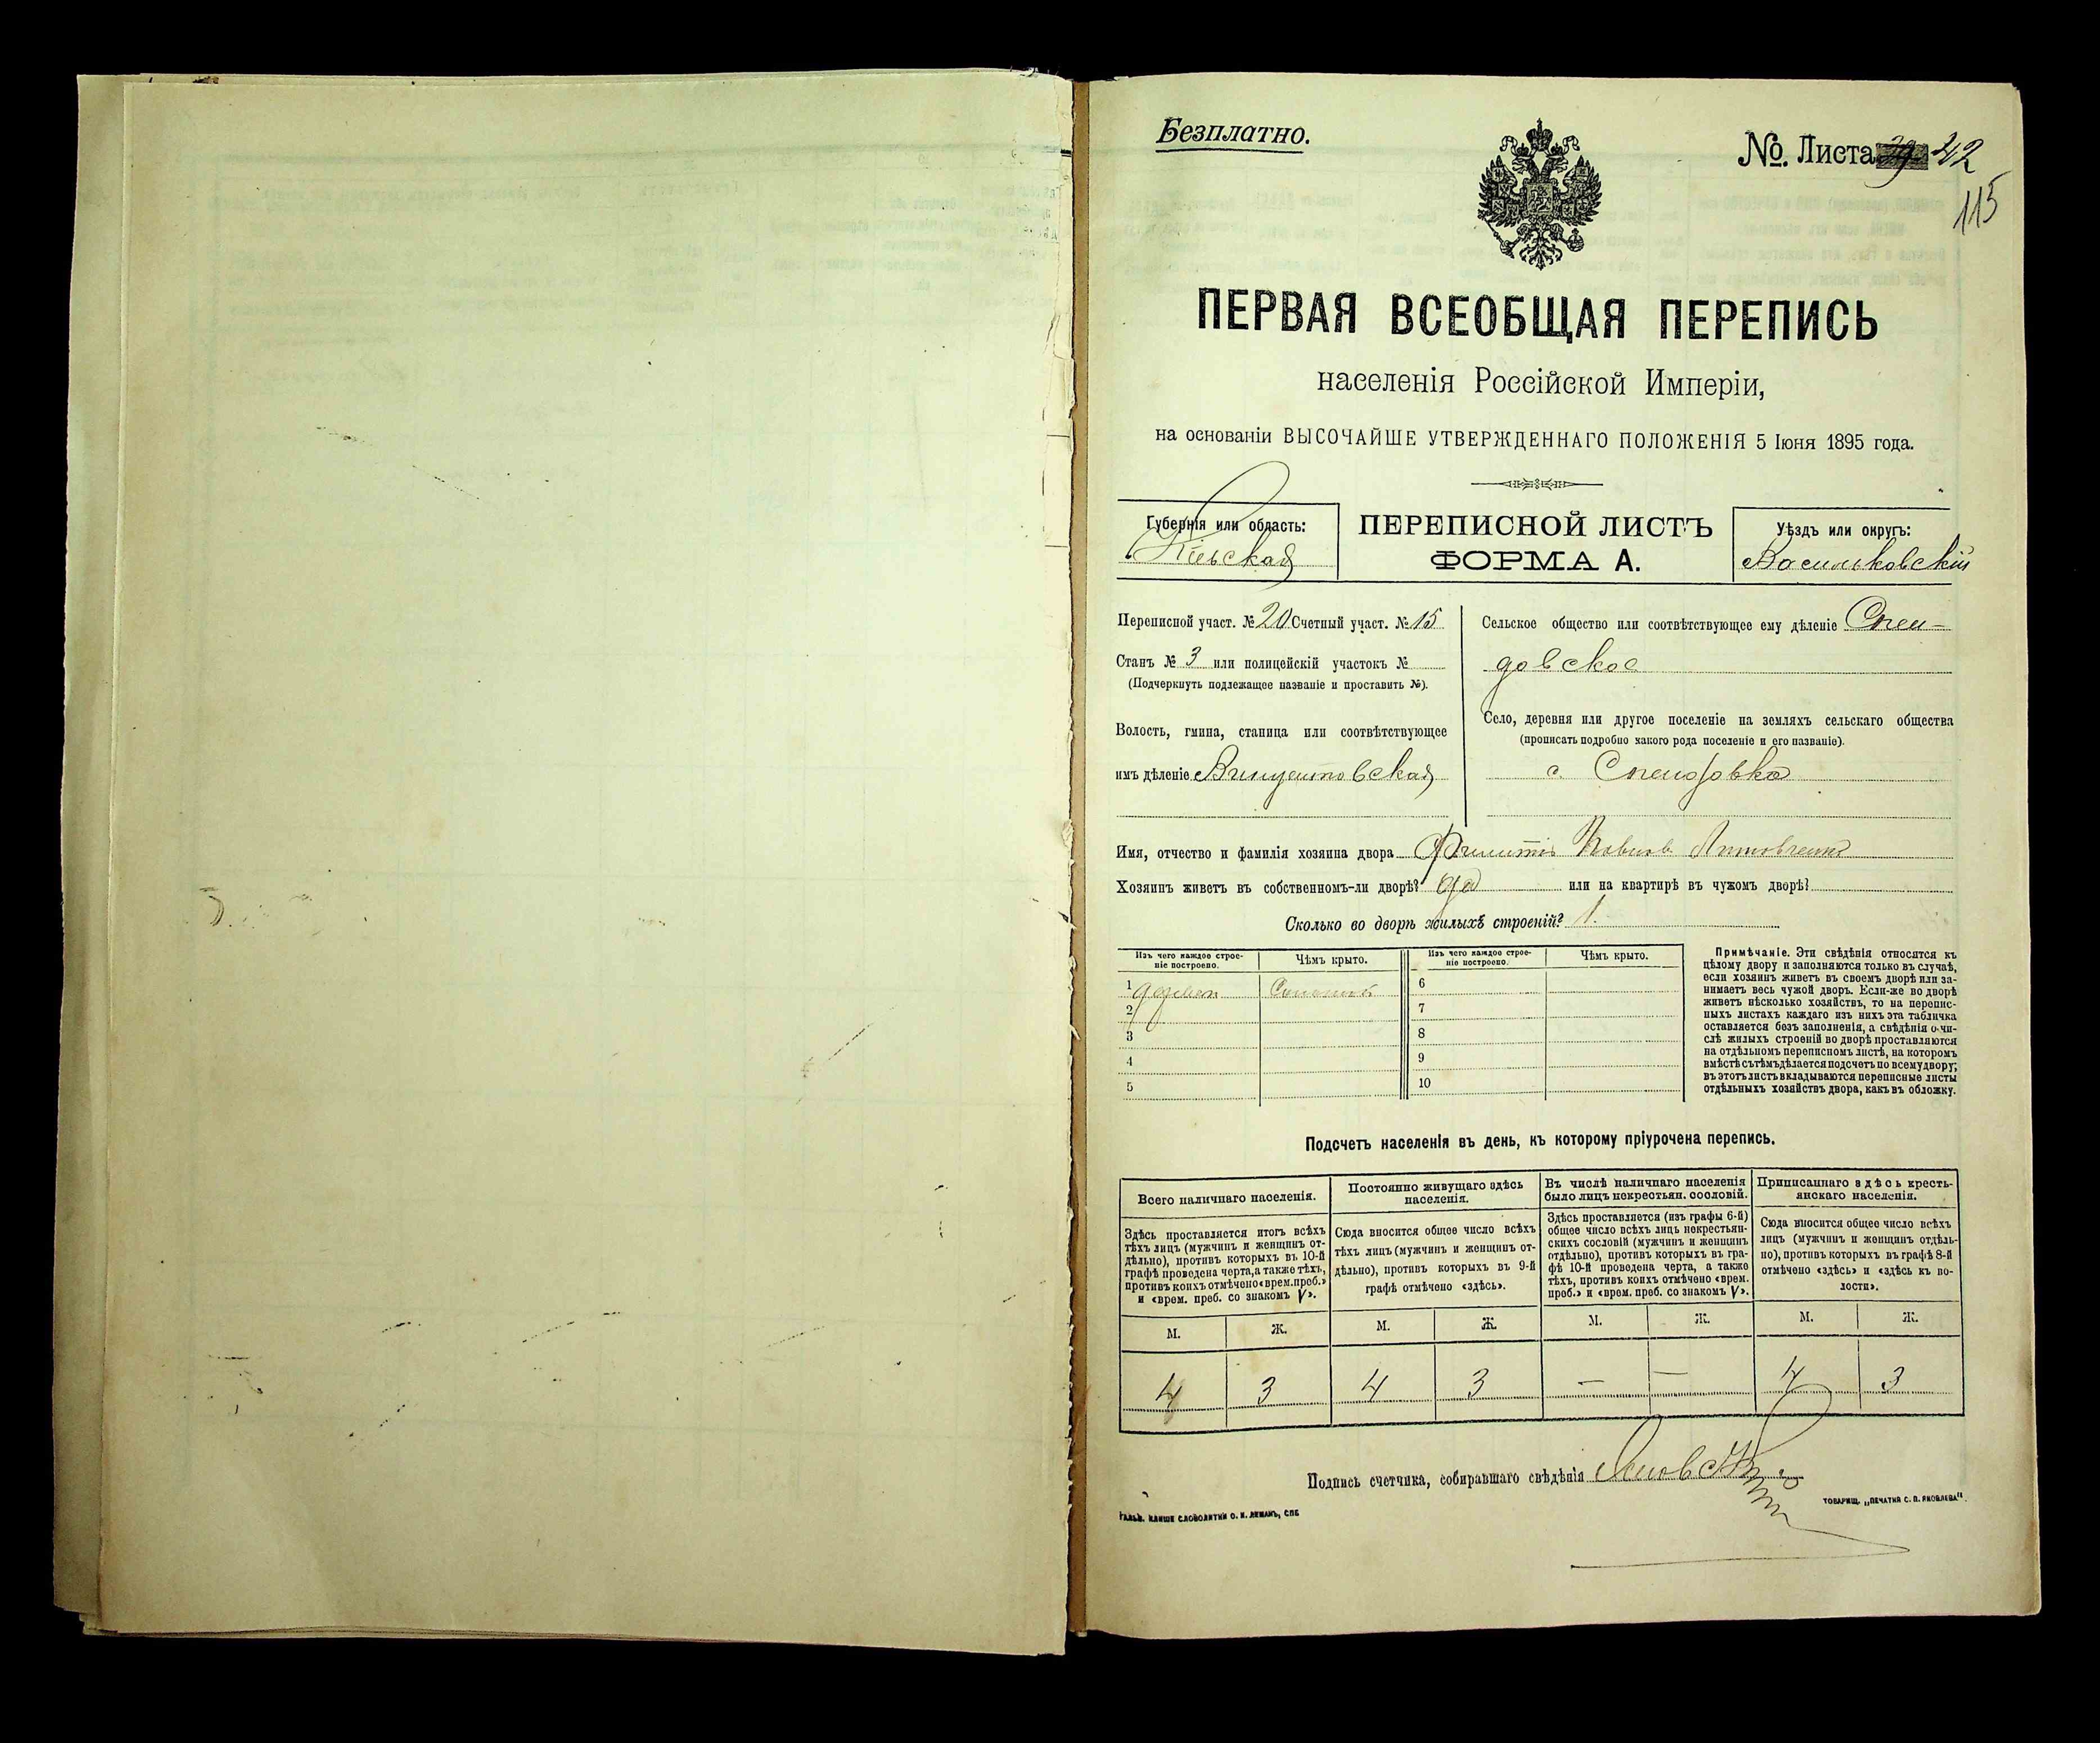 Безплатно.
№ Листа 42
115
ПЕРВАЯ ВСЕОБЩАЯ ПЕРЕПИСЬ
населенія Россійской Имперіи,
на основаніи ВЫСОЧАЙШЕ УТВЕРЖДЕННАГО ПОЛОЖЕНІЯ 5 Іюня 1895 года.
Губернія или область:
Кіевская
ПЕРЕПИСНОЙ ЛИСТЪ
ФОРМА А.
Уѣздъ или округъ:
Васильковскій
Переписной участ. № 20 Счетный участ. № 15
Станъ № 3 или полицейскій участокъ №
(Подчеркнуть подлежащее названіе и проставить №).
Волость, гмина, станица или соотвѣтствующее
имъ дѣленіе Винцентовская
Сельское общество или соотвѣтствующее ему дѣленіе
довское
Село, деревня или другое поселеніе на земляхъ сельскаго общества
(прописать подробно какого рода поселеніе и его названіе).
с.
Имя, отчество и фамилія хозяина двора
Хозяинъ живетъ въ собственномъ-ли дворѣ? да или на квартирѣ въ чужомъ дворѣ?
Сколько во дворѣ жилыхъ строеній? 1.
Изъ чего каждое строе-
ніе построено.
Чѣмъ крыто.
Изъ чего каждое строе-
ніе построено.
Чѣмъ крыто.
1 дерев Соломой
2
3
4
5
6
7
8
9
10
Примѣчаніе. Эти свѣдѣнія относятся къ
цѣлому двору и заполняются только въ случаѣ,
если хозяинъ живетъ въ своемъ дворѣ или за-
нимаетъ весь чужой дворъ. Если-же во дворѣ
живетъ нѣсколько хозяйствъ, то на перепис-
ныхъ листахъ каждаго изъ нихъ эта табличка
оставляется безъ заполненія, а свѣдѣнія о чи-
слѣ жилыхъ строеній во дворѣ проставляются
на отдѣльномъ переписномъ листѣ, на которомъ
вмѣстѣ съ тѣмъ дѣлается подсчетъ по всему двору;
въ этотъ листъ вкладываются переписные листы
отдѣльныхъ хозяйствъ двора, какъ въ обложку.
Подсчетъ населенія въ день, къ которому пріурочена перепись.
Всего наличнаго населенія.
Здѣсь проставляется итогъ всѣхъ
тѣхъ лицъ (мужчинъ и женщинъ от-
дѣльно), противъ которыхъ въ 10-й
графѣ проведена черта, а также тѣхъ,
противъ коихъ отмѣчено «врем. преб.»
и «врем. преб. со знакомъ V».
Постоянно живущаго здѣсь
населенія.
Сюда вносится общее число всѣхъ
тѣхъ лицъ (мужчинъ и женщинъ от-
дѣльно), противъ которыхъ въ 9-й
графѣ отмѣчено «здѣсь».
Въ числѣ наличнаго населенія
было лицъ некрестьян. сословій.
Здѣсь проставляется (изъ графы 6-й)
общее число всѣхъ лицъ некрестьян-
скихъ сословій (мужчинъ и женщинъ
отдѣльно), противъ которыхъ въ гра-
фѣ 10-й проведена черта, а также
тѣхъ, противъ коихъ отмѣчено «врем.
преб.» и «врем. преб. со знакомъ V».
Приписаннаго здѣсь кресть-
янскаго населенія.
Сюда вносится общее число всѣхъ
лицъ (мужчинъ и женщинъ отдѣль-
но), противъ которыхъ въ графѣ 8-й
отмѣчено «здѣсь» и «здѣсь къ во-
лости».
М. Ж. М. Ж. М. Ж. М. Ж.
4 3 4 3 — — 4 3
Подпись счетчика, собиравшаго свѣдѣнія
ГАЛЬВ. КЛИШЕ СЛОВОЛИТНИ О. И. ЛЕМАНЪ, СПБ
ТОВАРИЩ. „ПЕЧАТНЯ С. П. ЯКОВЛЕВА".